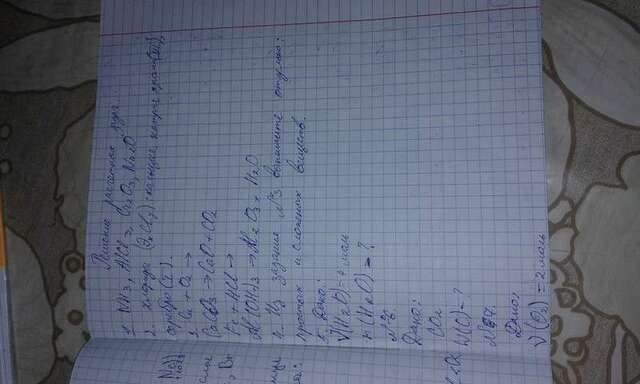 Решение расчетных задач
1. NH3, AlCl3, Cr2O3, Na2O
2. Хлорида (ЭxCly): кальция, натрия, хрома(III),
серебро (I).
3. Cu + O2 →
CaCO3 → CaO + CO2
Fe + HCl →
Al(OH)3 → Al2O3 + H2O
4. Из задания №3 выпишите
простых и сложных веществ.
5. Дано:
ν(H2O) = 4 моль
(H2O) - ?
№6.
Дано:
CO2
W(C) - ?
№7.
Дано:
ν(O2) = 2 моль